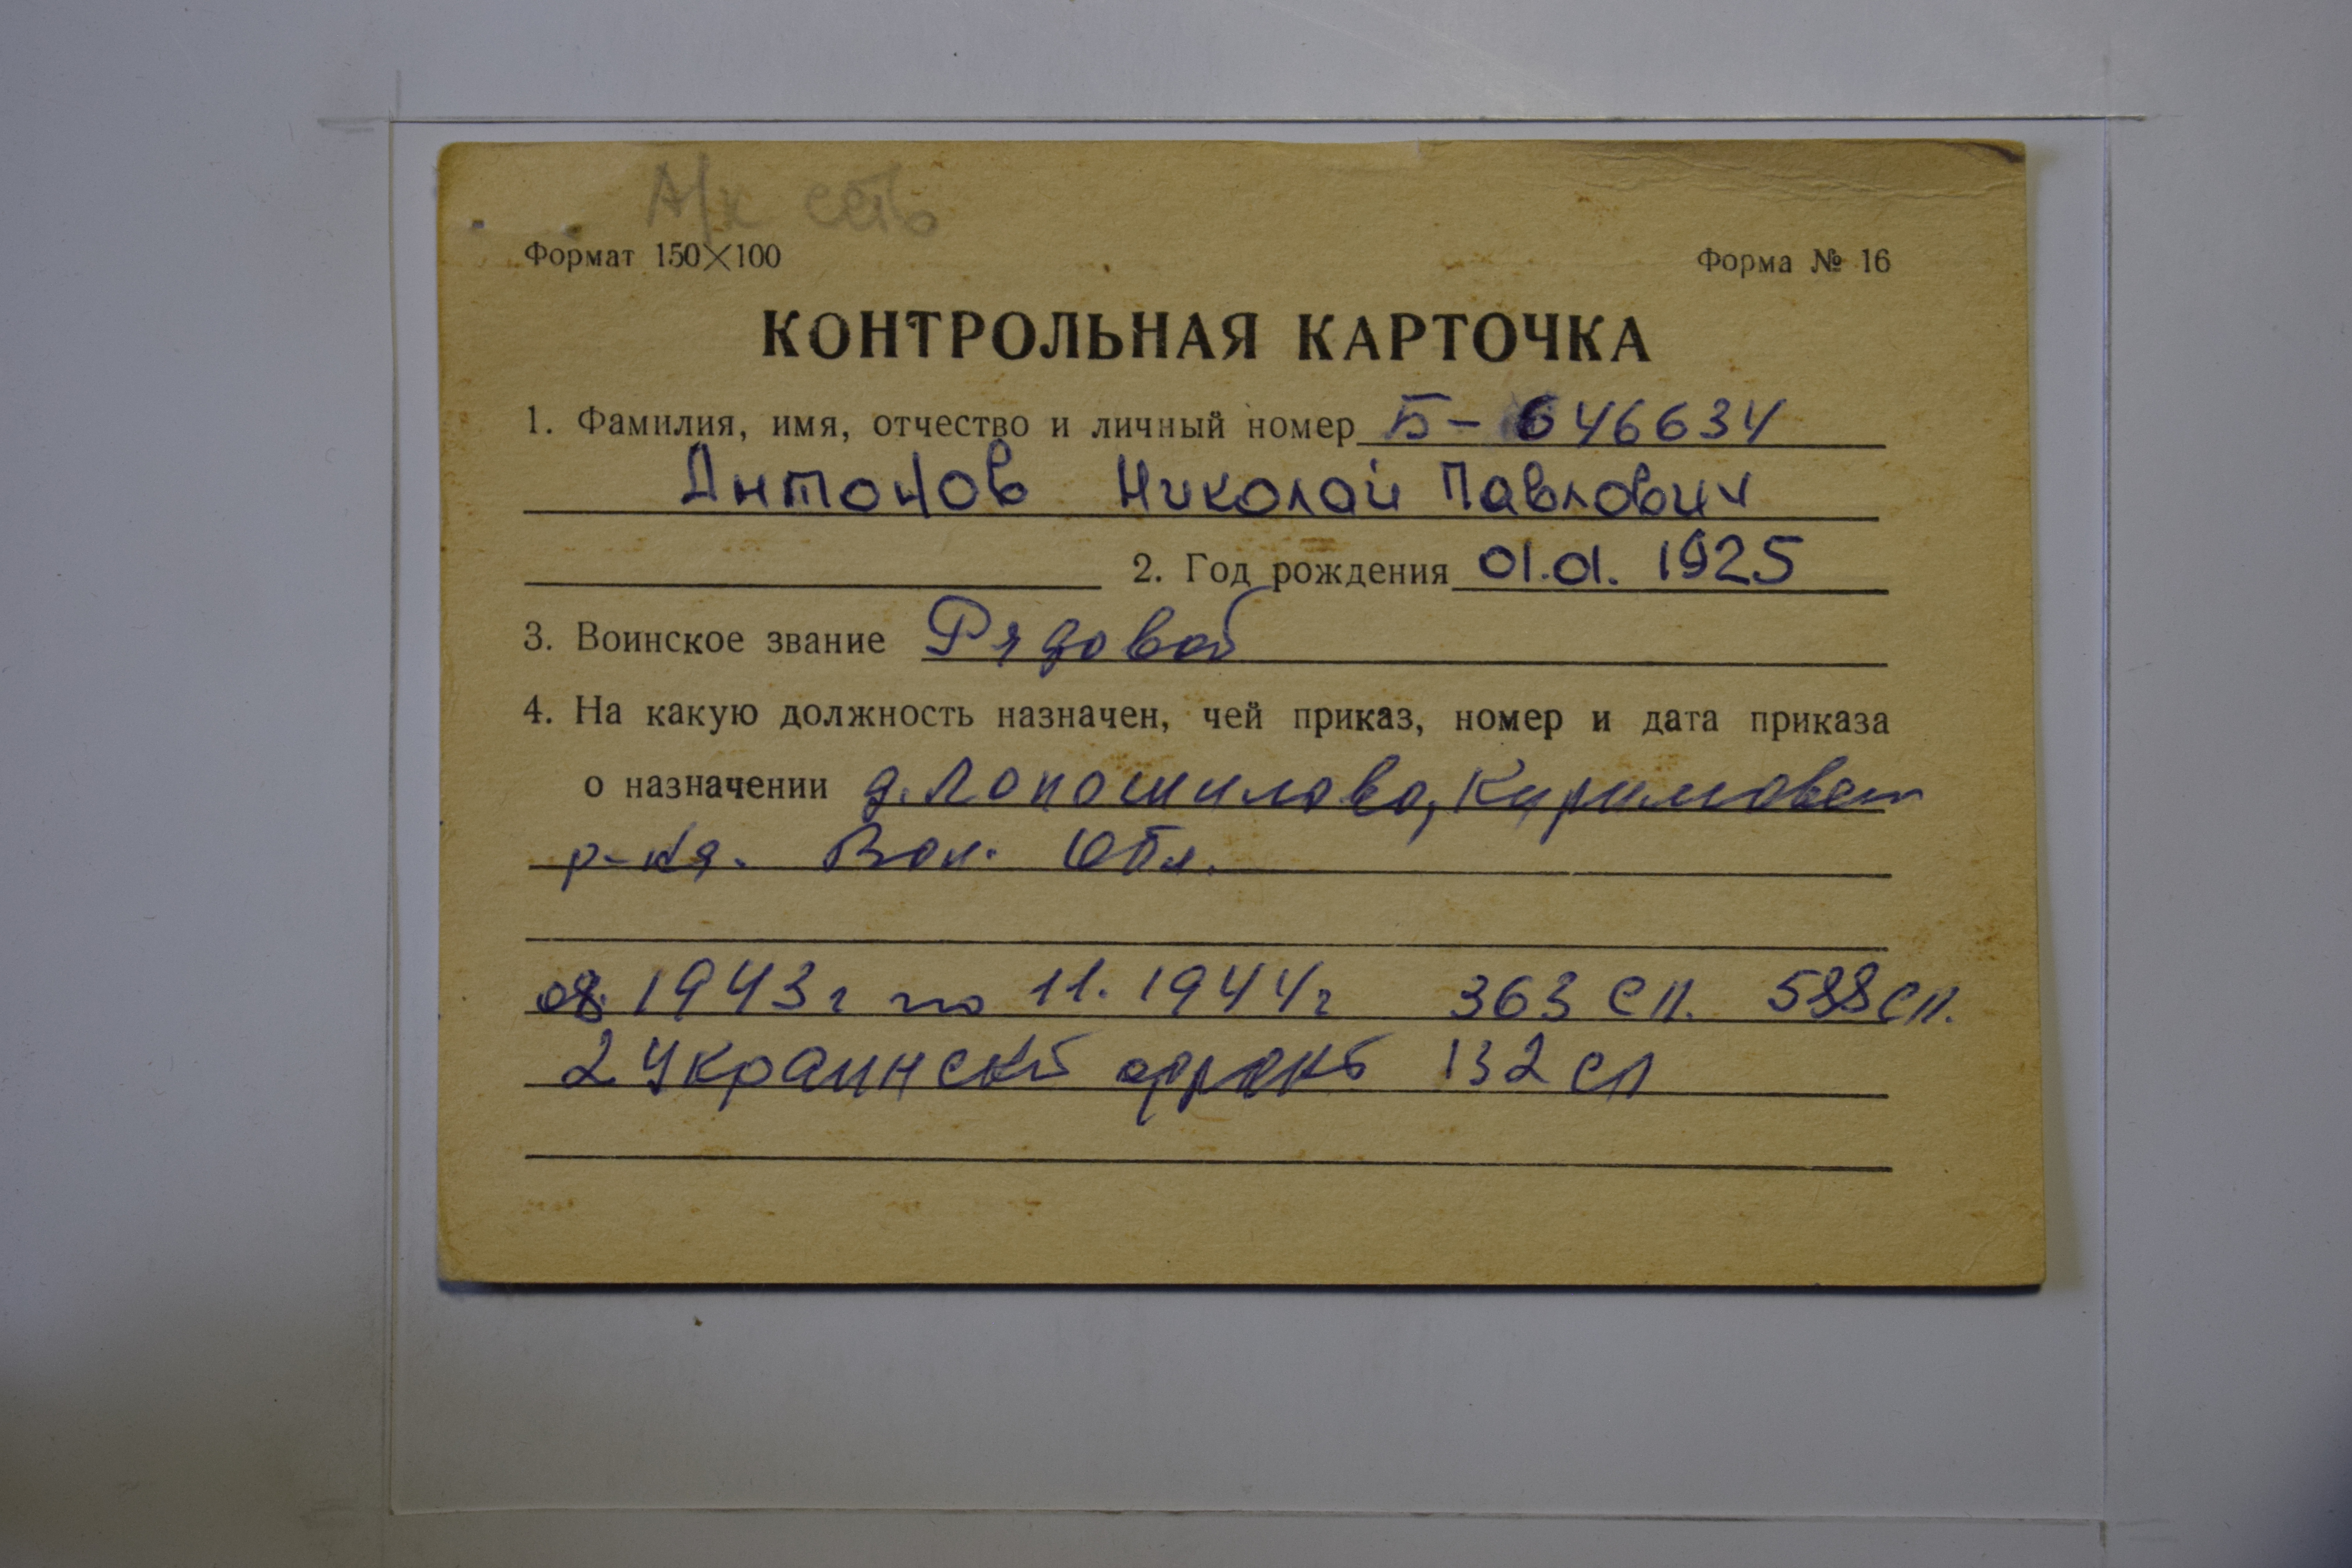 А/к есть
Формат 150×100 Форма № 16
КОНТРОЛЬНАЯ КАРТОЧКА
1. Фамилия, имя, отчество и личный номер Б- 646634
Антонов Николай Павлович
2. Год рождения 01.01. 1925
3. Воинское звание Рядовой
4. На какую должность назначен, чей приказ, номер и дата приказа
о назначении д. Лопошилово,
р-на. Вол. Обл.
08. 1943г по 11. 1944г 363 сп. 588 сп.
2 Украинск фронт 132 сп